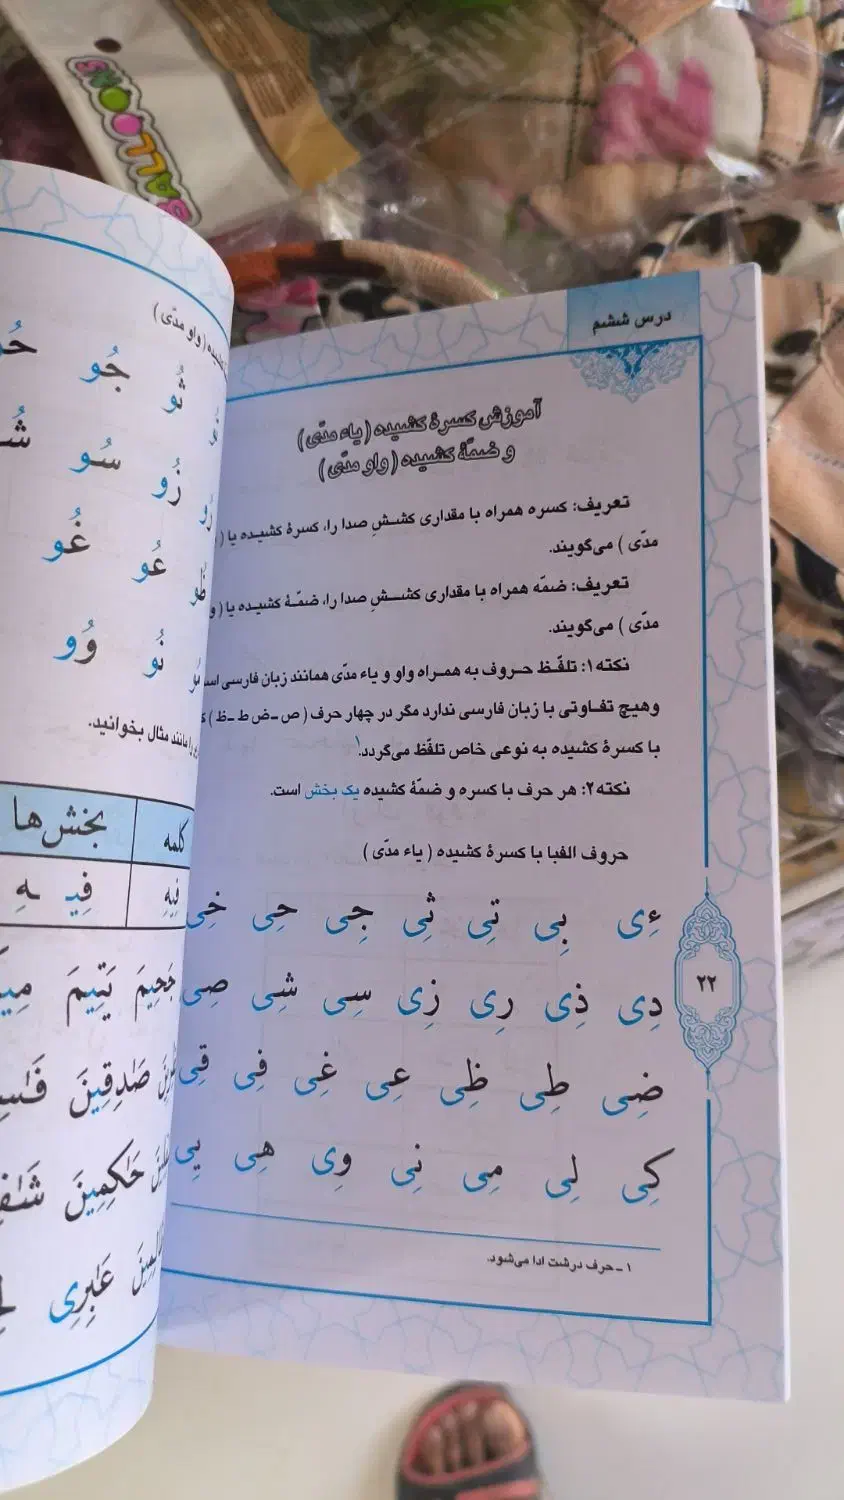 BALLOONS
درس ششم
آموزش کسرهٔ کشیده ( یاء مدّی )
و ضمّهٔ کشیده ( واو مدّی )
تعریف: کسره همراه با مقداری کشـشِ صدا را، کسرهٔ کشـیده یا (
مدّی ) می‌گویند.
تعریف: ضمّه همراه با مقداری کشــشِ صدا را، ضمّـهٔ کشیـده یا ( و
مدّی ) می‌گویند.
نکته۱: تلفّـظ حـروف به همـراه واو و یاء مدّی همانند زبان فارسی
وهیچ تفـاوتی با زبان فارسی ندارد مگر در چهار حرف ( ص ـ ض ط ـ ظ )
با کسرهٔ کشیده به نوعی خاص تلفّظ می‌گردد.۱
نکته۲: هر حرف با کسره و ضمّهٔ کشیده یک بخش است.
حروف الفبا با کسرهٔ کشیده ( یاء مدّی )
ءِی بِی تِی ثِی جِی حِی خِی
دِی ذِی رِی زِی سِی شِی صِی
ضِی طِی ظِی عِی غِی فِی قِی
کِی لِی مِی نِی وِی هِی یِی
۱ ـ حرف درشت ادا می‌شود.
۲۲
( واو مدّی )
ثُو جُو
زُو سُو
عُو غُو
نُو وُو
مانند مثال بخوانید.
کلمه بخش‌ها
فِیهِ فِیـ ـهِ
جَحِیمَ یَتِیمَ
صَادِقِینَ
حَاکِمِینَ
عَابِرِی